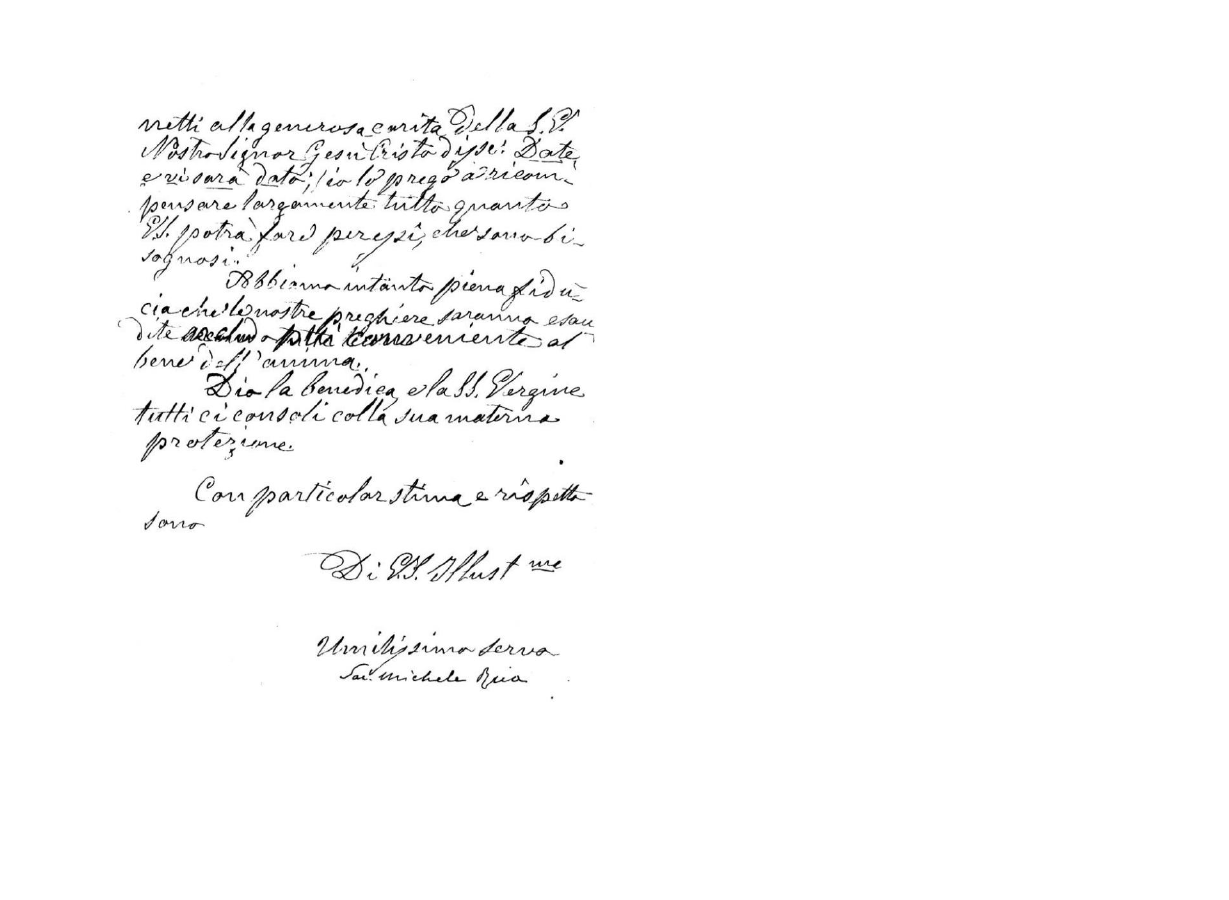 netti alla generosa carità della S. V.
Nostro Signor Gesù Cristo disse: Date
e vi sarà dato; io lo prego a ricom-
pensare largamente tutto quanto
V. S. potrà fare per essi, che sono bi-
sognosi.
Abbiamo intanto piena fidu-
cia che le nostre preghiere saranno esau
dite conveniente al
bene dell'anima.
Dio la benedica e la SS. Vergine
tutti ci consoli colla sua materna
protezione.
Con particolar stima e rispetto
sono
Di V. S. Illustme
Umilissimo servo
Sac. Michele Rua